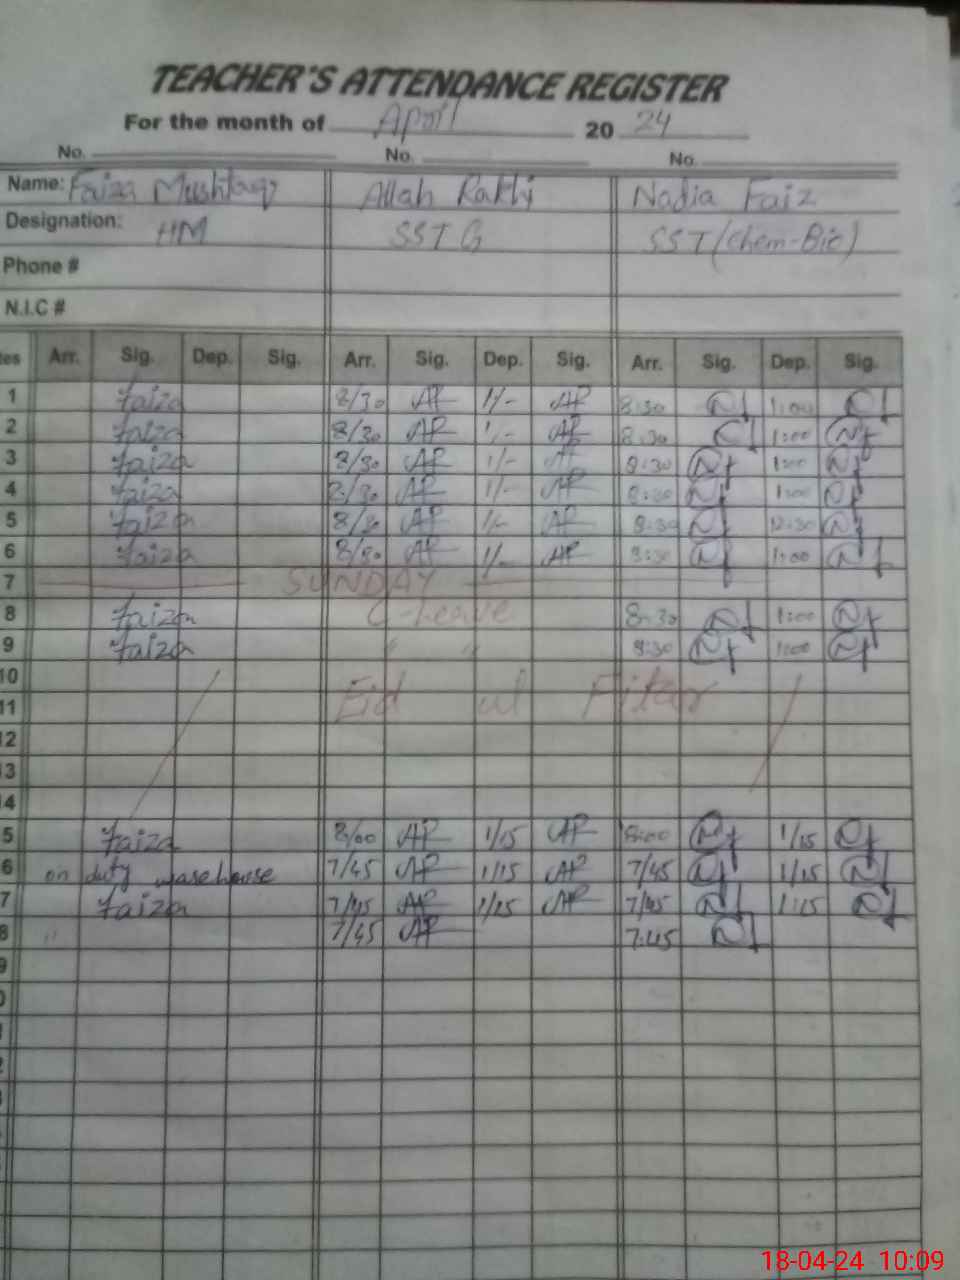 TEACHER'S ATTENDANCE REGISTER
For the month of April 20 24
No. No. No.
Name: Faiza Mushtaq Allah Rakhi Nadia Faiz
Designation: HM SST G SST (Chem-Bio)
Phone #
N.I.C #
tes Arr. Sig. Dep. Sig. Arr. Sig. Dep. Sig. Arr. Sig. Dep. Sig.
1 Faiza 8/30 AR 1/- AR 8:30 Nf 1:00 Nf
2 Faiza 8/30 AR 1/- AR 8:30 Nf 1:00 Nf
3 Faiza 8/30 AR 1/- AR 8:30 Nf 1:00 Nf
4 Faiza 8/30 AR 1/- AR 8:30 Nf 1:00 Nf
5 Faiza 8/30 AR 1/- AR 8:30 Nf 12:30 Nf
6 Faiza 8/30 AR 1/- AR 8:30 Nf 1:00 Nf
7 SUNDAY
8 Faiza C-Leave 8:30 Nf 1:00 Nf
9 Faiza " " 8:30 Nf 1:00 Nf
10 Eid ul Fitar
11
12
13
14
5 Faiza 8/00 AR 1/15 AR 8:00 Nf 1/15 Nf
6 on duty warehouse 7/45 AR 1/15 AR 7/45 Nf 1/15 Nf
7 Faiza 7/45 AR 1/15 AR 7/45 Nf 1:15 Nf
8 " 7/45 AR 7:45 Nf
9
0
18-04-24 10:09